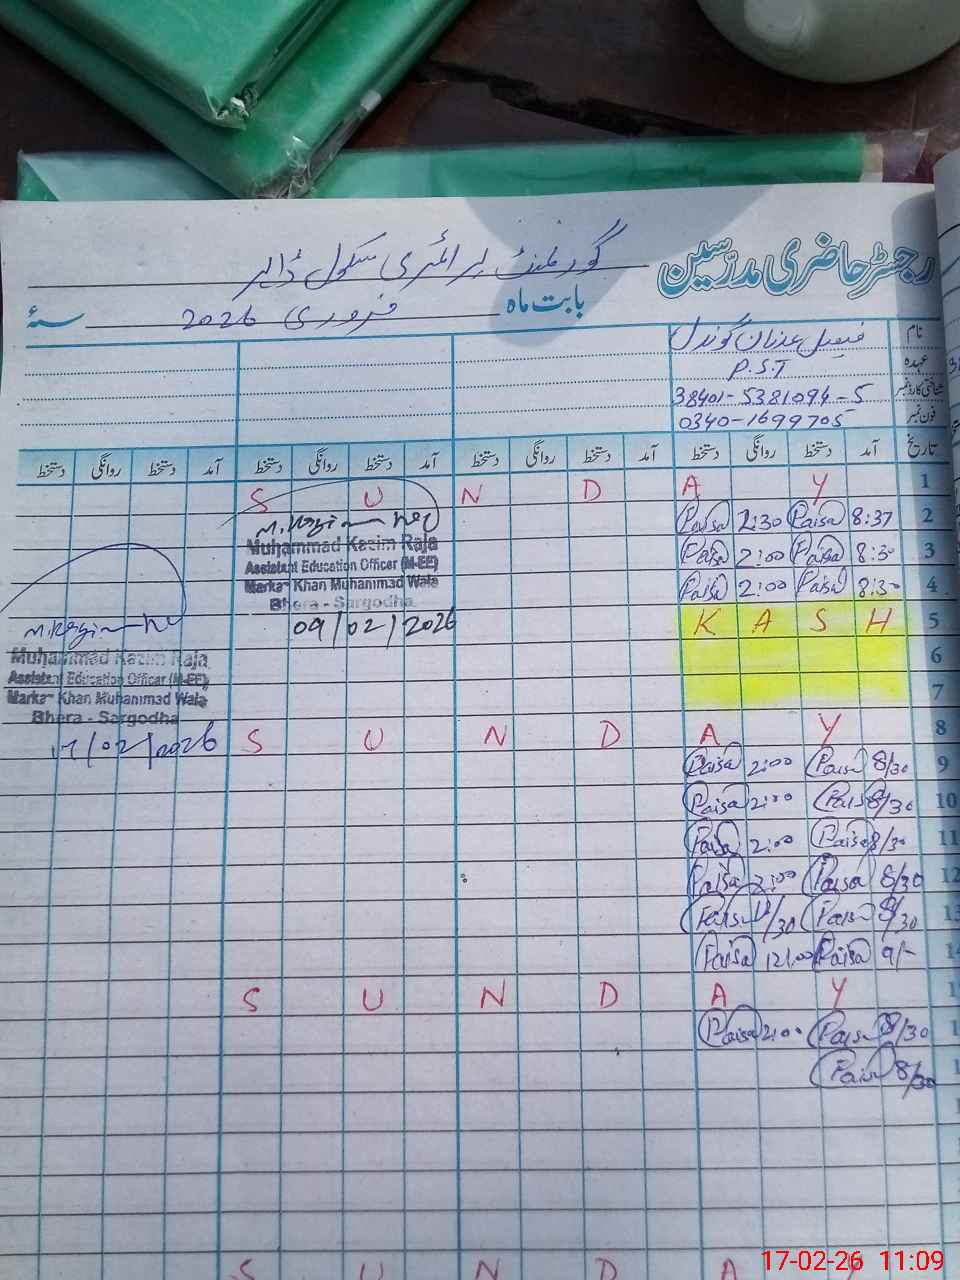 رجسٹر حاضری مدرسین
گورنمنٹ پرائمری سکول
بابت ماہ فروری 2026 سنہ
نام فیصل عدنان گوندل
عہدہ P.S.T
شناختی کارڈ نمبر 38401-5381094-5
فون نمبر 0340-1699705
تاریخ آمد دستخط روانگی دستخط آمد دستخط روانگی دستخط آمد دستخط روانگی دستخط آمد دستخط روانگی دستخط
S U N D A Y 1
Paisa 2:30 Paisa 8:37 2
Paisa 2:00 Paisa 8:30 3
Paisa 2:00 Paisa 8:30 4
K A S H 5
6
7
S U N D A Y 8
Paisa 2:00 Paisa 8/30 9
Paisa 2:00 Paisa 8/30 10
Paisa 2:00 Paisa 8/30 11
Paisa 2:00 Paisa 8/30 12
Paisa 12/30 Paisa 8/30 13
Paisa 12:00 Paisa 9/-
S U N D A Y
Paisa 2:00 Paisa 8/30
Paisa 8/30
S U N D A
Muhammad Kazim Raja
Assistant Education Officer (M-EE)
Markaz Khan Muhammad Wala
Bhera - Sargodha
09/02/2026
Muhammad Kazim Raja
Assistant Education Officer (M-EE)
Markaz Khan Muhammad Wala
Bhera - Sargodha
17/02/2026
17-02-26 11:09